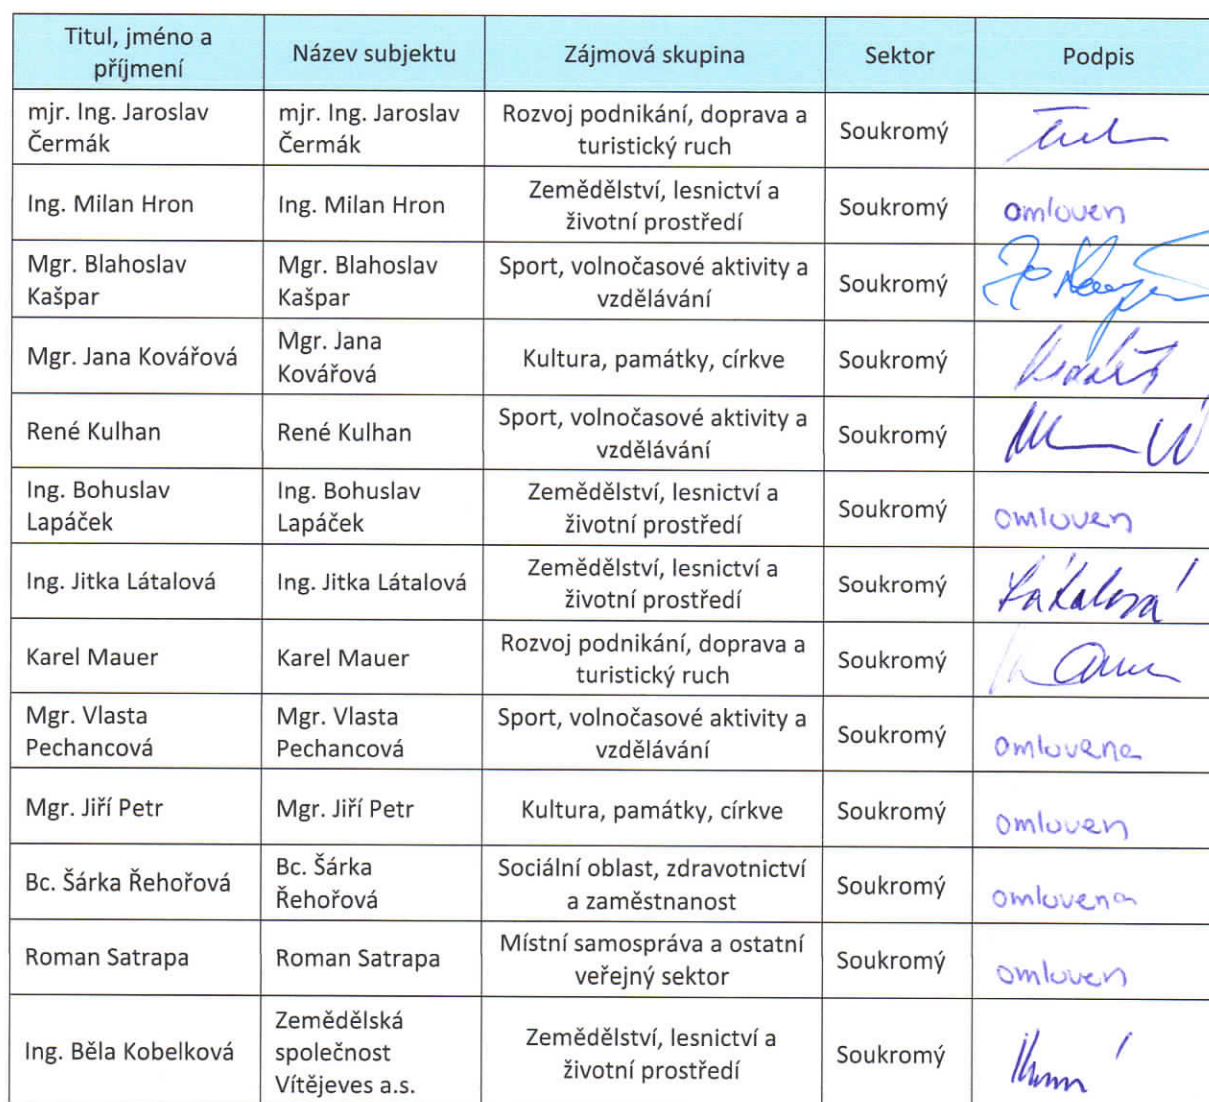 Titul, jméno a
příjmení
Název subjektu
Zájmová skupina
Sektor
Podpis
mjr. Ing. Jaroslav
Čermák
mjr. Ing. Jaroslav
Čermák
Rozvoj podnikání, doprava a
turistický ruch
Soukromý
Ing. Milan Hron
Ing. Milan Hron
Zemědělství, lesnictví a
životní prostředí
Soukromý
omluven
Mgr. Blahoslav
Kašpar
Mgr. Blahoslav
Kašpar
Sport, volnočasové aktivity a
vzdělávání
Soukromý
Mgr. Jana Kovářová
Mgr. Jana
Kovářová
Kultura, památky, církve
Soukromý
René Kulhan
René Kulhan
Sport, volnočasové aktivity a
vzdělávání
Soukromý
Ing. Bohuslav
Lapáček
Ing. Bohuslav
Lapáček
Zemědělství, lesnictví a
životní prostředí
Soukromý
omluven
Ing. Jitka Látalová
Ing. Jitka Látalová
Zemědělství, lesnictví a
životní prostředí
Soukromý
Látalová
Karel Mauer
Karel Mauer
Rozvoj podnikání, doprava a
turistický ruch
Soukromý
Mgr. Vlasta
Pechancová
Mgr. Vlasta
Pechancová
Sport, volnočasové aktivity a
vzdělávání
Soukromý
omluvena
Mgr. Jiří Petr
Mgr. Jiří Petr
Kultura, památky, církve
Soukromý
omluven
Bc. Šárka Řehořová
Bc. Šárka
Řehořová
Sociální oblast, zdravotnictví
a zaměstnanost
Soukromý
omluvena
Roman Satrapa
Roman Satrapa
Místní samospráva a ostatní
veřejný sektor
Soukromý
omluven
Ing. Běla Kobelková
Zemědělská
společnost
Vítějeves a.s.
Zemědělství, lesnictví a
životní prostředí
Soukromý